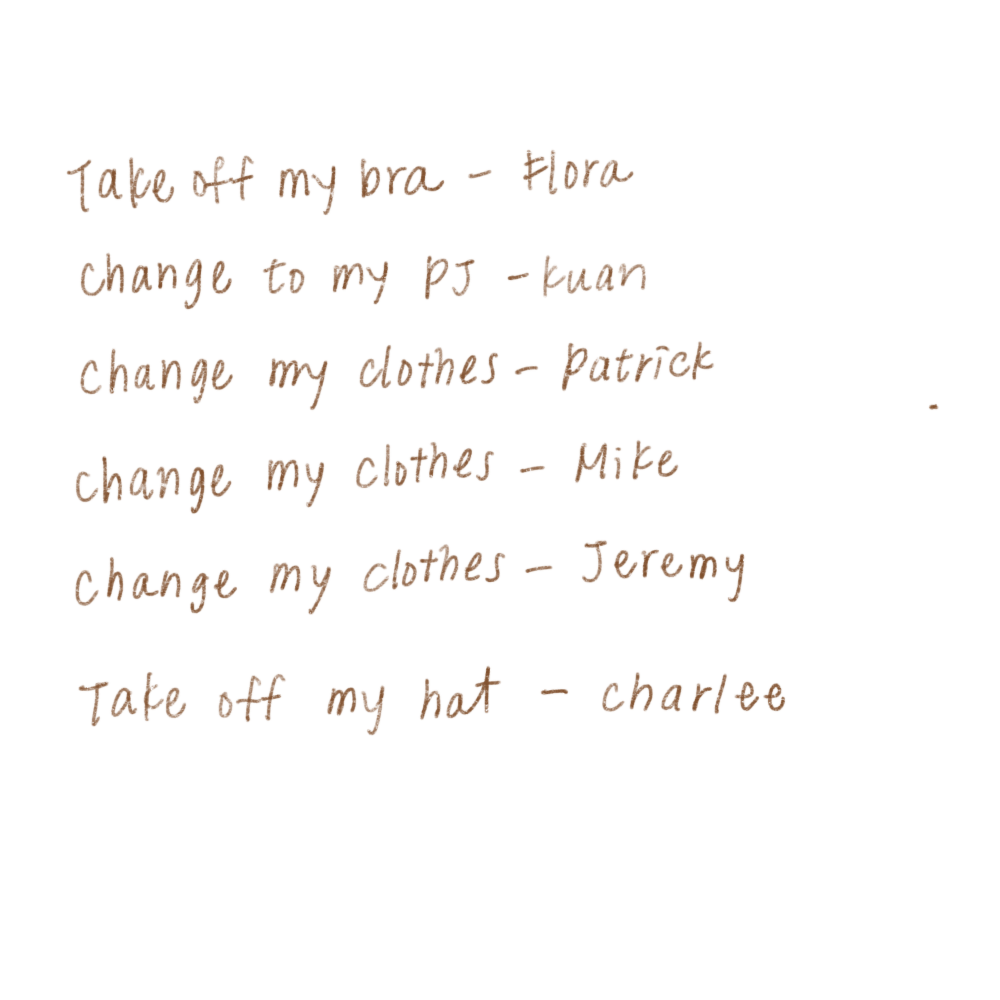 Take off my bra - Flora
change to my PJ - kuan
change my clothes - Patrick
change my clothes - Mike
change my clothes - Jeremy
Take off my hat - charlee